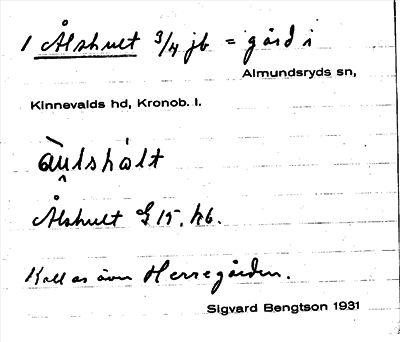 1 Ålshult 3/4 jb = gård i
Almundsryds sn,
Kinnevalds hd, Kronob. l.
àu̯lshàlt
Ålshult G 15. kb.
Kallas även Herregården.
Sigvard Bengtson 1931